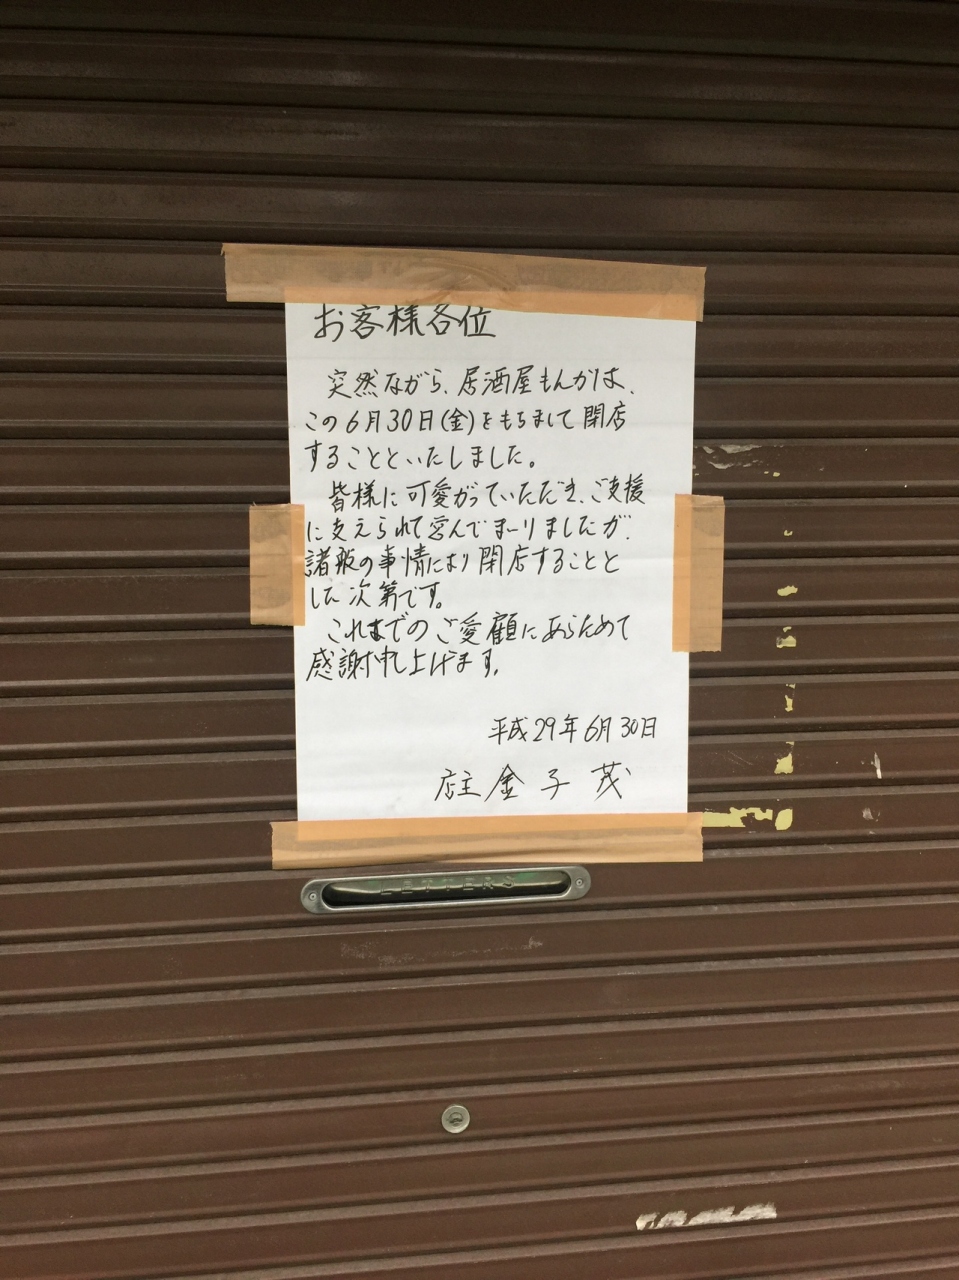 お客様各位
突然ながら、居酒屋もんがは、
この6月30日(金)をもちまして閉店
することといたしました。
皆様に可愛がっていただき、ご支援
に支えられて営んでまーりましたが、
諸般の事情により閉店することと
した次第です。
これまでのご愛顧にあらためて
感謝申し上げます。
平成29年6月30日
店主 金子 茂
LETTERS